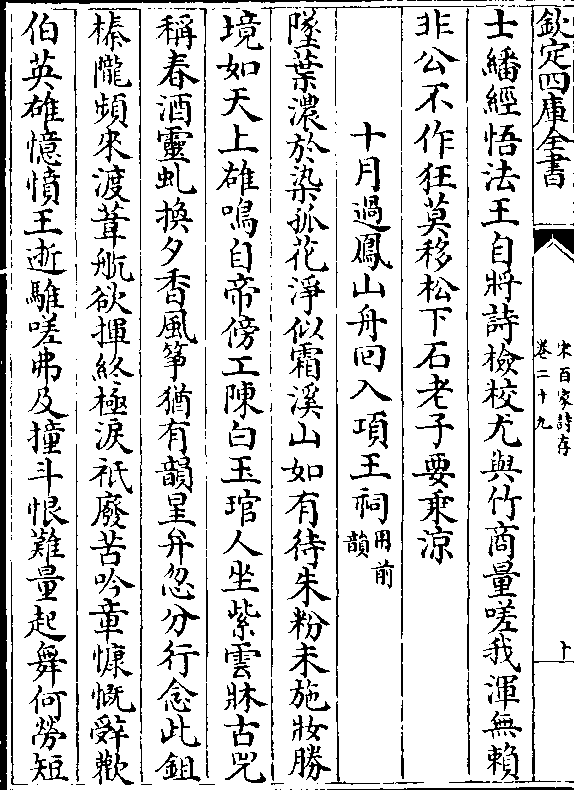 欽定四庫全書
宋百家詩存
卷二十九
士繙經悟法王自將詩檢校尤與竹商量嗟我渾無賴
非公不作狂莫移松下石老子要乘涼
十月過鳳山舟回入項王祠用前韻
墜葉濃於染孤花淨似霜溪山如有待朱粉未施妝勝
境如天上雄鳴自帝傍工陳白玉琯人坐紫雲牀古兕
稱春酒靈虬換夕香風箏猶有韻星弁忽分行念此鉏
榛隴頻來渡葦航欲揮終極淚祇廢苦吟章慷慨辭歡
伯英雄憶憤王逝騅嗟弗及撞斗恨難量起舞何勞短